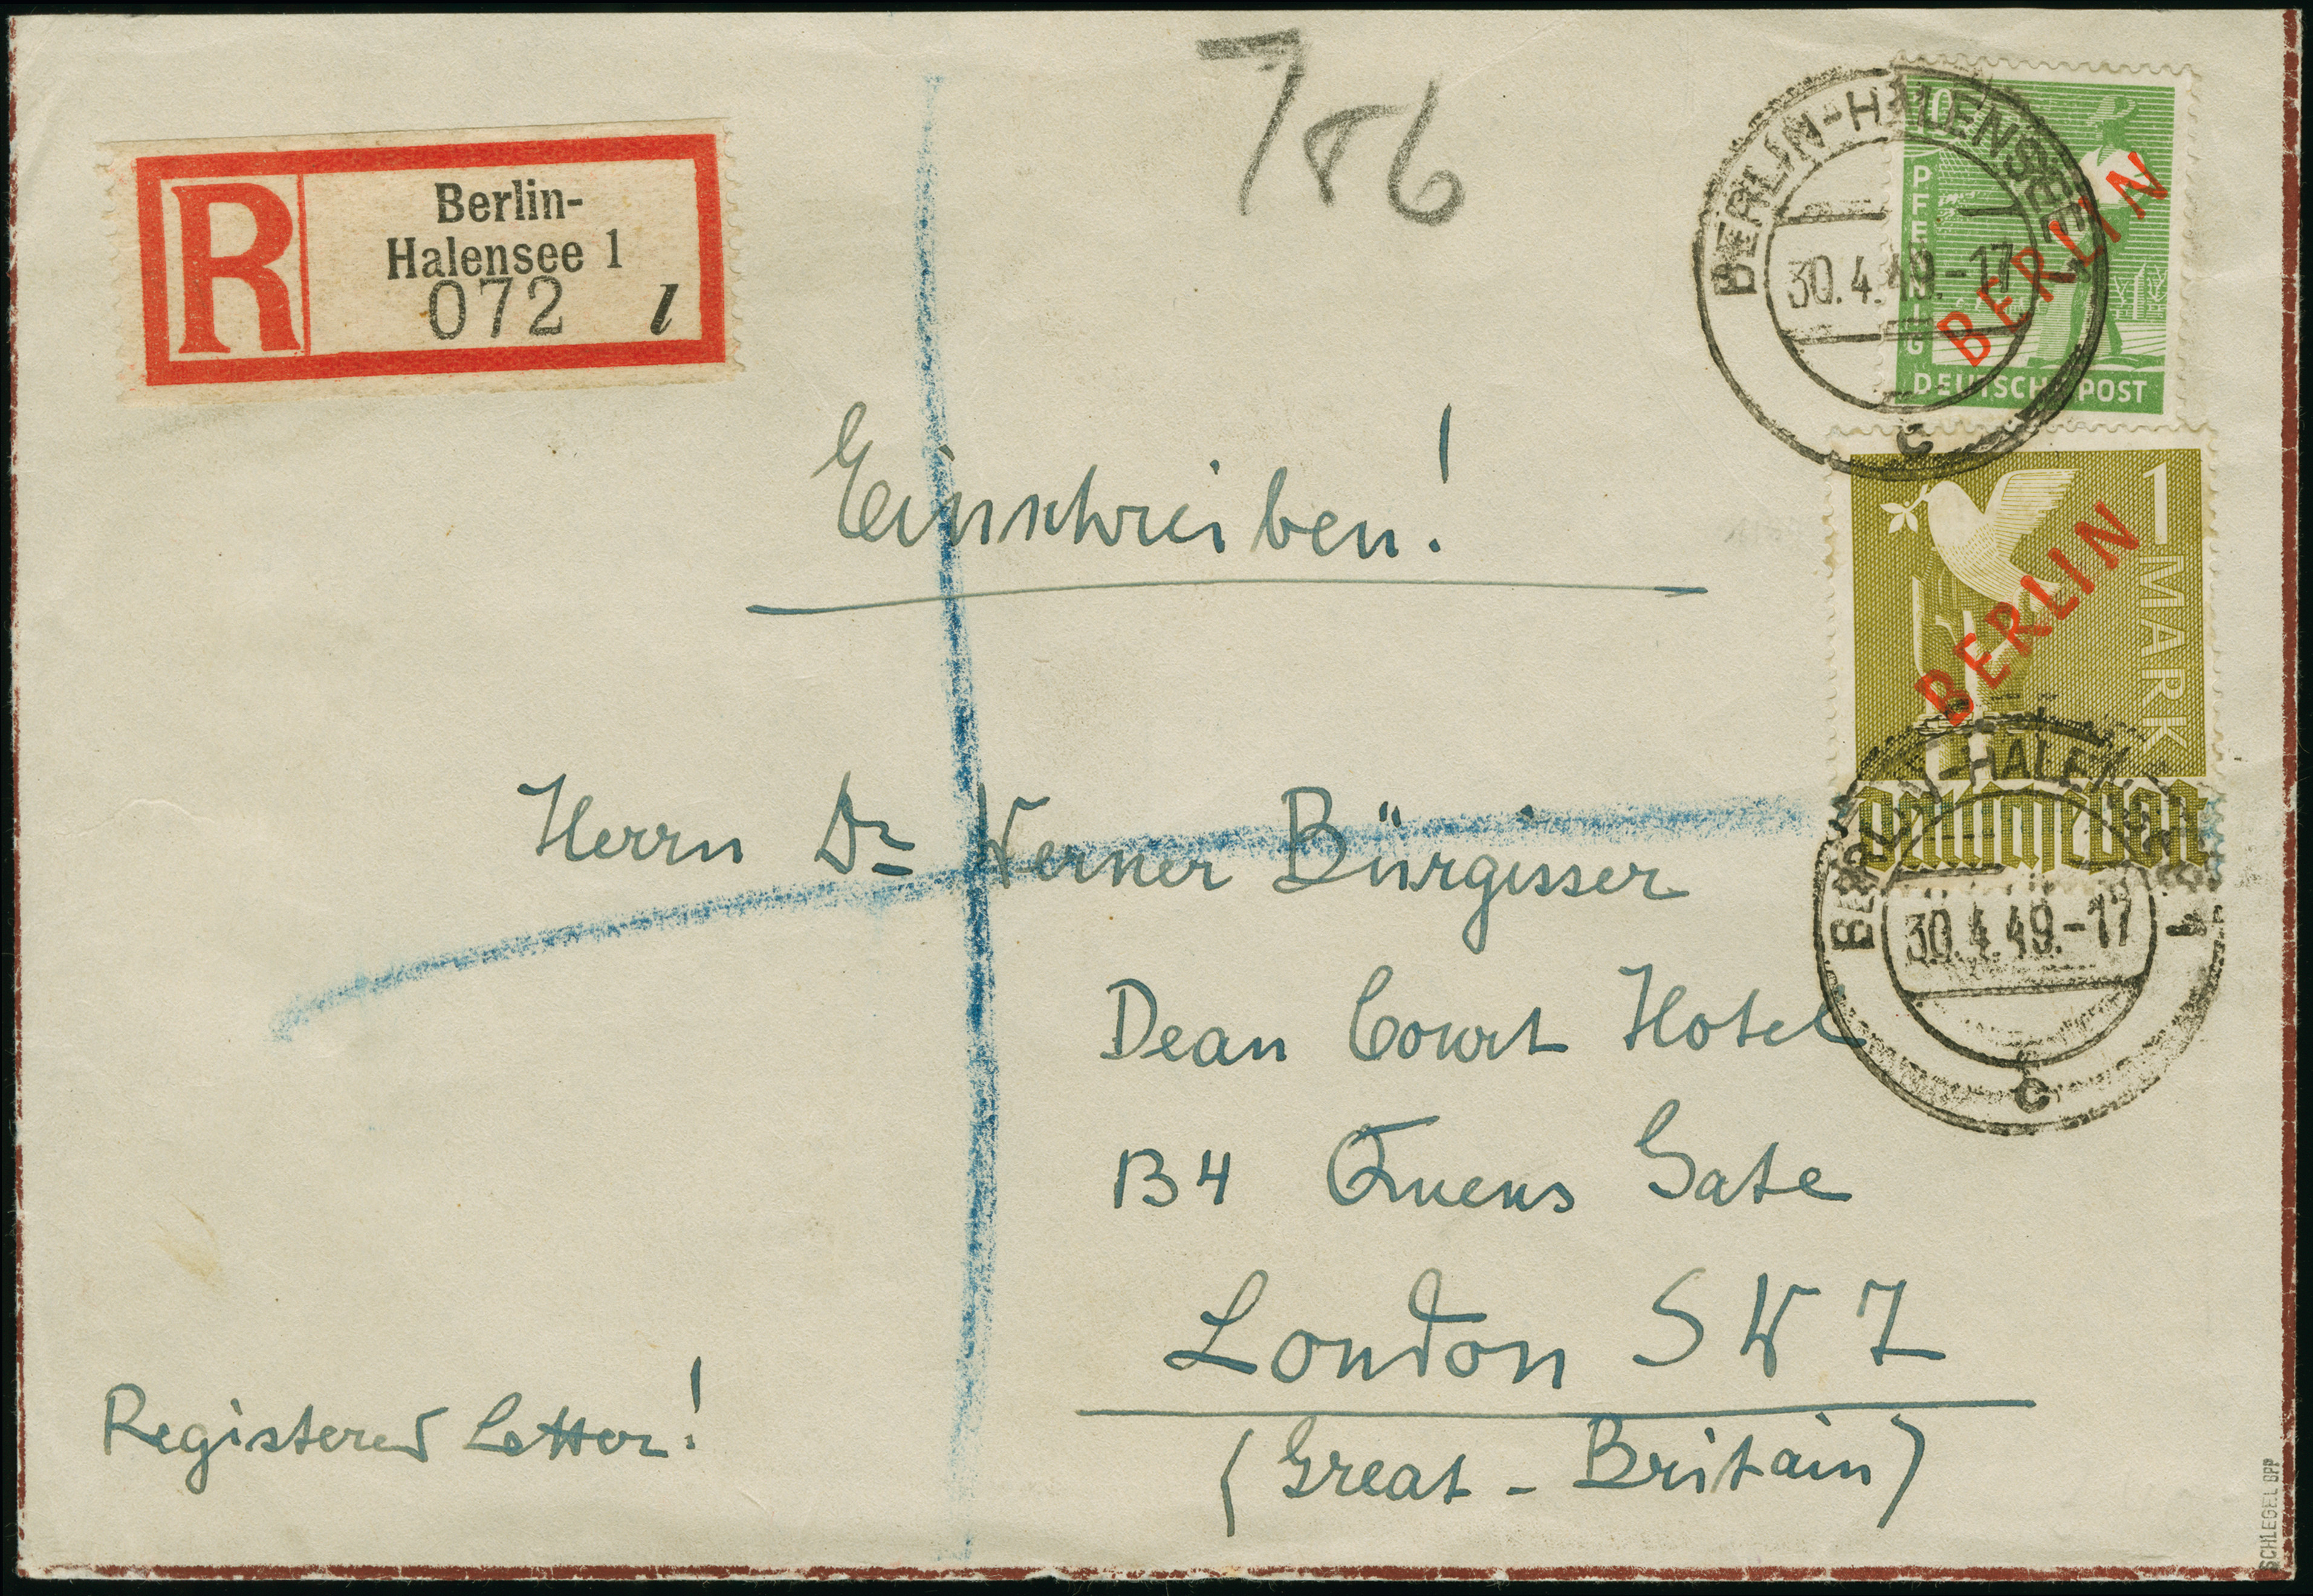 786
R
Berlin-
Halensee 1
072 l
BERLIN-HALENSEE 1
30.4.49.-17
c
10
PFENNIG
DEUTSCHE POST
BERLIN
Einschreiben!
1 MARK
BERLIN
Deutsche Post
BERLIN-HALENSEE 1
30.4.49.-17
c
Herrn Dr Werner Bürgisser
Dean Court Hotel
134 Queens Gate
London SW 7
Registered Letter!
(Great-Britain)
SCHLEGEL BPP